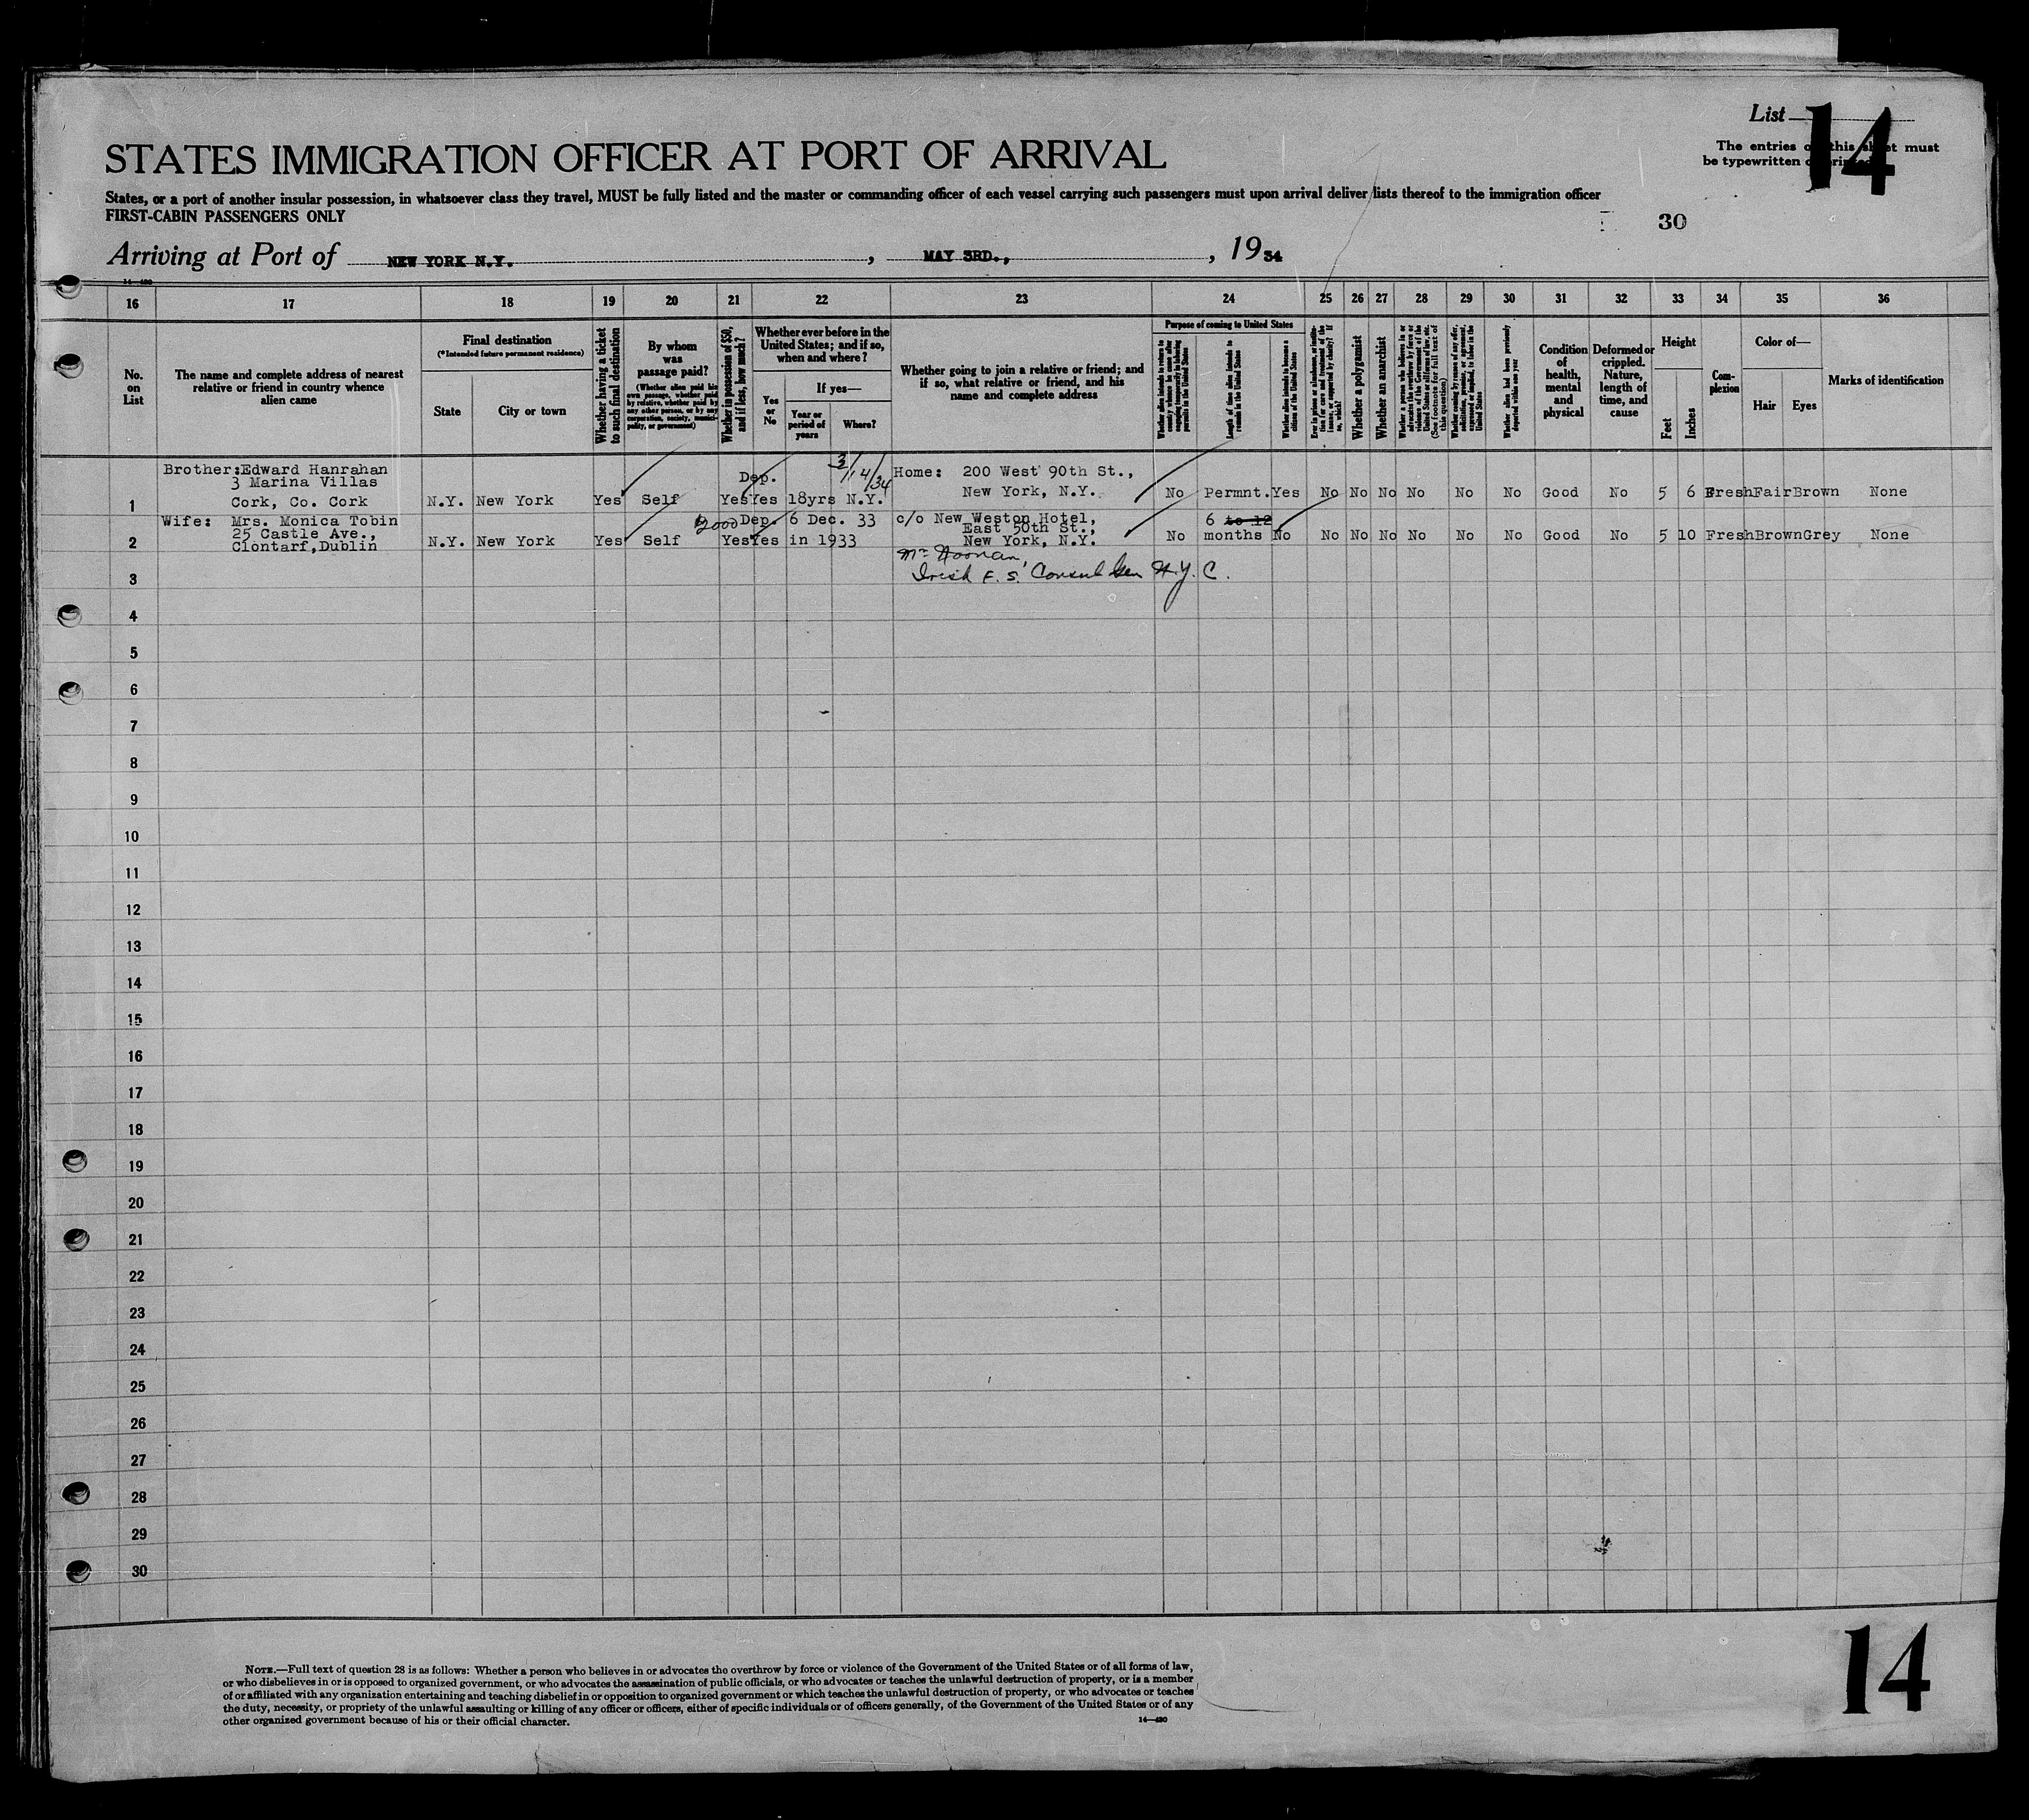 List 14
The entries on this sheet must
be typewritten or printed
STATES IMMIGRATION OFFICER AT PORT OF ARRIVAL
States, or a port of another insular possession, in whatsoever class they travel, MUST be fully listed and the master or commanding officer of each vessel carrying such passengers must upon arrival deliver lists thereof to the immigration officer
FIRST-CABIN PASSENGERS ONLY
30
Arriving at Port of NEW YORK N.Y. , MAY 3RD., , 1934
14—430
16 17 18 19 20 21 22 23 24 25 26 27 28 29 30 31 32 33 34 35 36
No. on List
The name and complete address of nearest relative or friend in country whence alien came
Final destination
(*Intended future permanent residence)
State
City or town
Whether having a ticket to such final destination
By whom was passage paid?
(Whether alien paid his own passage, whether paid by relative, whether paid by any other person, or by any corporation, society, municipality, or government)
Whether in possession of $50, and if less, how much?
Whether ever before in the United States; and if so, when and where?
Yes or No
If yes—
Year or period of years
Where?
Whether going to join a relative or friend; and if so, what relative or friend, and his name and complete address
Purpose of coming to United States
Whether alien intends to return to country whence he came after engaging temporarily in laboring pursuits in the United States
Length of time alien intends to remain in the United States
Whether alien intends to become a citizen of the United States
Ever in prison or almshouse, or institution for care and treatment of the insane, or supported by charity? If so, which?
Whether a polygamist
Whether an anarchist
Whether a person who believes in or advocates the overthrow by force or violence of the Government of the United States or all forms of law, etc. (See footnote for full text of this question)
Whether coming by reason of any offer, solicitation, promise, or agreement, expressed or implied, to labor in the United States
Whether alien had been previously deported within one year
Condition of health, mental and physical
Deformed or crippled. Nature, length of time, and cause
Height
Feet
Inches
Complexion
Color of—
Hair
Eyes
Marks of identification
Brother: Edward Hanrahan
3 Marina Villas Dep. 3/14/34 Home: 200 West 90th St.,
1 Cork, Co. Cork N.Y. New York Yes Self Yes Yes 18yrs N.Y. New York, N.Y. No Permnt. Yes No No No No No No Good No 5 6 Fresh Fair Brown None
Wife: Mrs. Monica Tobin $2000 Dep. 6 Dec. 33 c/o New Weston Hotel, 6 to 12
25 Castle Ave., East 50th St.,
2 Clontarf, Dublin N.Y. New York Yes Self Yes Yes in 1933 New York, N.Y. No months No No No No No No No Good No 5 10 Fresh Brown Grey None
Mr Noonan
3 Irish F. S. Consul Gen N.Y.C.
4
5
6
7
8
9
10
11
12
13
14
15
16
17
18
19
20
21
22
23
24
25
26
27
28
29
30
NOTE.—Full text of question 28 is as follows: Whether a person who believes in or advocates the overthrow by force or violence of the Government of the United States or of all forms of law,
or who disbelieves in or is opposed to organized government, or who advocates the assassination of public officials, or who advocates or teaches the unlawful destruction of property, or is a member
of or affiliated with any organization entertaining and teaching disbelief in or opposition to organized government or which teaches the unlawful destruction of property, or who advocates or teaches
the duty, necessity, or propriety of the unlawful assaulting or killing of any officer or officers, either of specific individuals or of officers generally, of the Government of the United States or of any
other organized government because of his or their official character.
14—430
14